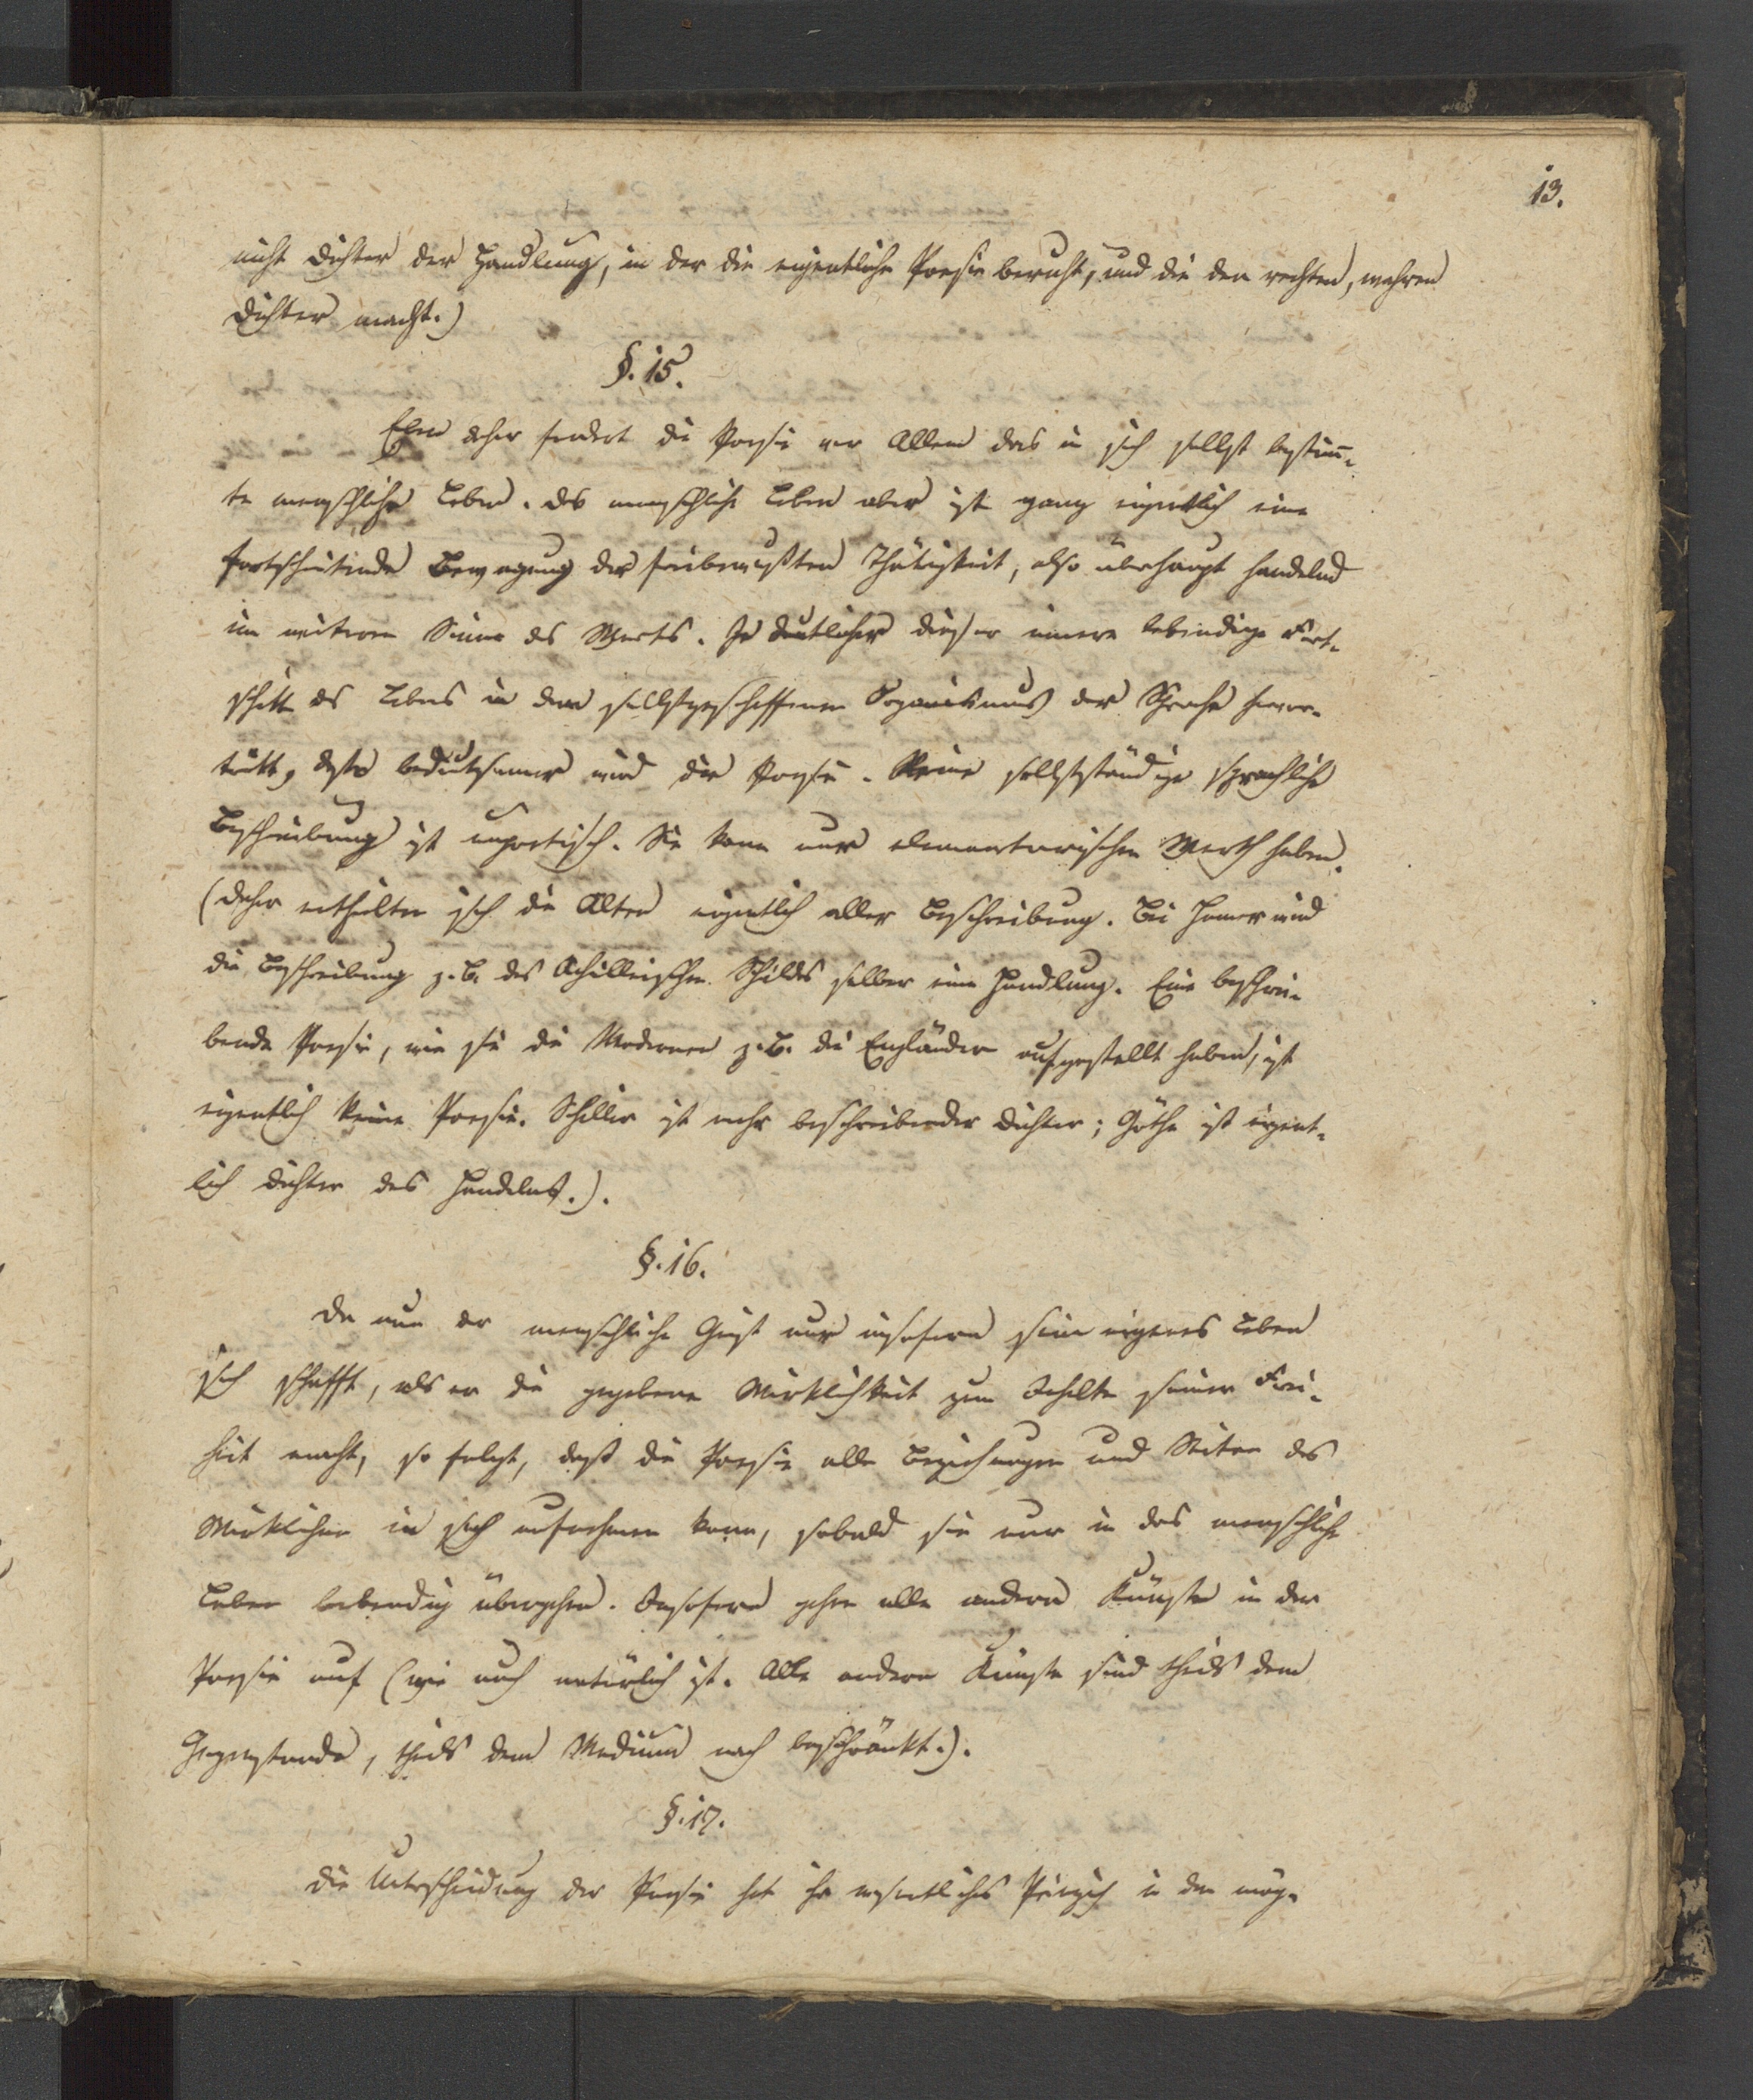 13.
nicht Dichter der Handlung, in der die eigentliche Poesie beruht, und die den rechten, wahren
Dichter macht.)
§. 15.
Eben daher fordert die Poesie vor Allem das in sich selbst bestim̄-
te menschliche Leben. Das menschliche Leben aber ist ganz eigentlich eine
fortschreitende Bewegung der freibewußten Thätigkeit, also überhaupt handelnd
im weiteren Sinne des Worts. Je deutlicher dieser innere lebendige Fort-
schritt des Lebens in dem selbstgeschaffenen Organismus der Sprache hervor-
tritt, desto bedeutsamer wird die Poesie. Keine selbstständige sprachliche
Beschreibung ist unpoetisch. Sie kann nur elementarischen Werth haben.
(Daher enthielten sich die Alten eigentlich aller Beschreibung. Bei Homer wird
die Beschreibung z. B. des Achilleischen Schildes selber eine Handlung. Eine beschrei-
bende Poesie, wie sie die Modernen z. B. die Engländer aufgestellt haben, ist
eigentlich keine Poesie. Schiller ist mehr beschreibender Dichter; Göthe ist eigent-
lich Dichter des Handelns.).
§. 16.
Da nun der menschliche Geist nur insofern sein eigenes Leben
sich schafft, als er die gegebene Wirklichkeit zum Inhalte seiner Frei-
heit macht, so folgt, daß die Poesie alle Beziehungen und Seiten des
Wirklichen in sich aufnehmen kann, sobald sie nur in das menschliche
Leben lebendig übergehen. Insofern gehen alle andern Künste in der
Poesie auf (wie auch natürlich ist. Alle andern Künste sind theils dem
Gegenstande, theils dem Medium nach beschränkt.).
§. 17.
Die Unterscheidung der Poesie hat ihr wesentliches Prinzip in den mög-